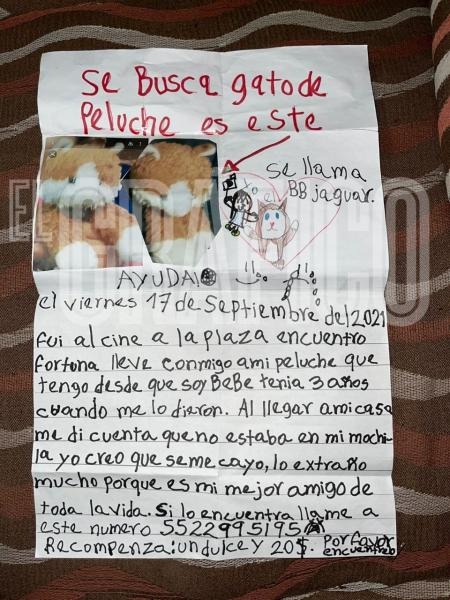 Se Busca gato de
Peluche es este
se llama
BB jaguar.
yo
él
AYUDA!
el viernes 17 de Septiembre del 2021
fui al cine a la plaza encuentro
fortuna lleve conmigo ami peluche que
tengo desde que soy BeBe tenia 3 años
cuando me lo dieron. Al llegar ami casa
me di cuenta que no estaba en mi mochi-
la yo creo que se me cayo, lo extraño
mucho porque es mi mejor amigo de
toda la vida. Si lo encuentra llame a
este numero 5522995195
Recompenza: un dulce y 20$. Por favor
encuentrelo
EL GRÁFICO